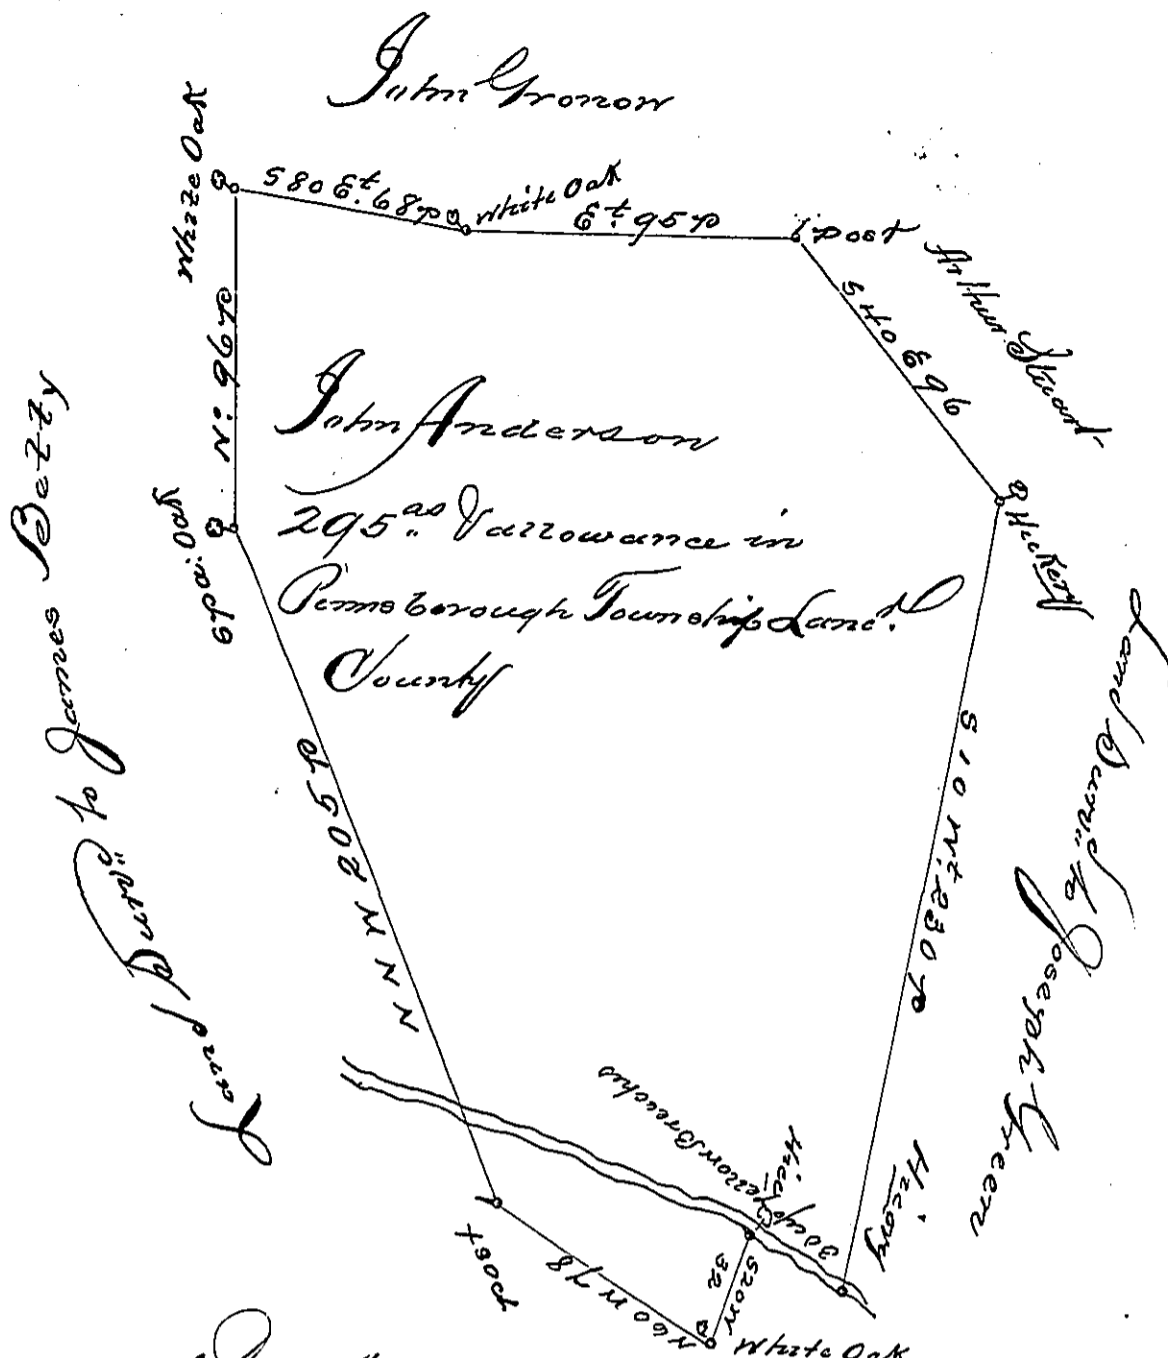 John Gronow
White Oak
S80 Et 89 p
White Oak
Et 95 p
post
Arthur Stuart
S40 E 96
Hickery
N: 96 p
Span: Oak
John Anderson
295 as & allowance in
Pennsborough Township Lanc.
County
Land Surv.d to James Betty
NNW 205 p
S 10 Wt 230 p
Land Surv.d to Joseph Green
Yellow Breeches
Hiccory
30 p
Hiccory
S20W
32
post
N60W 78
White Oak